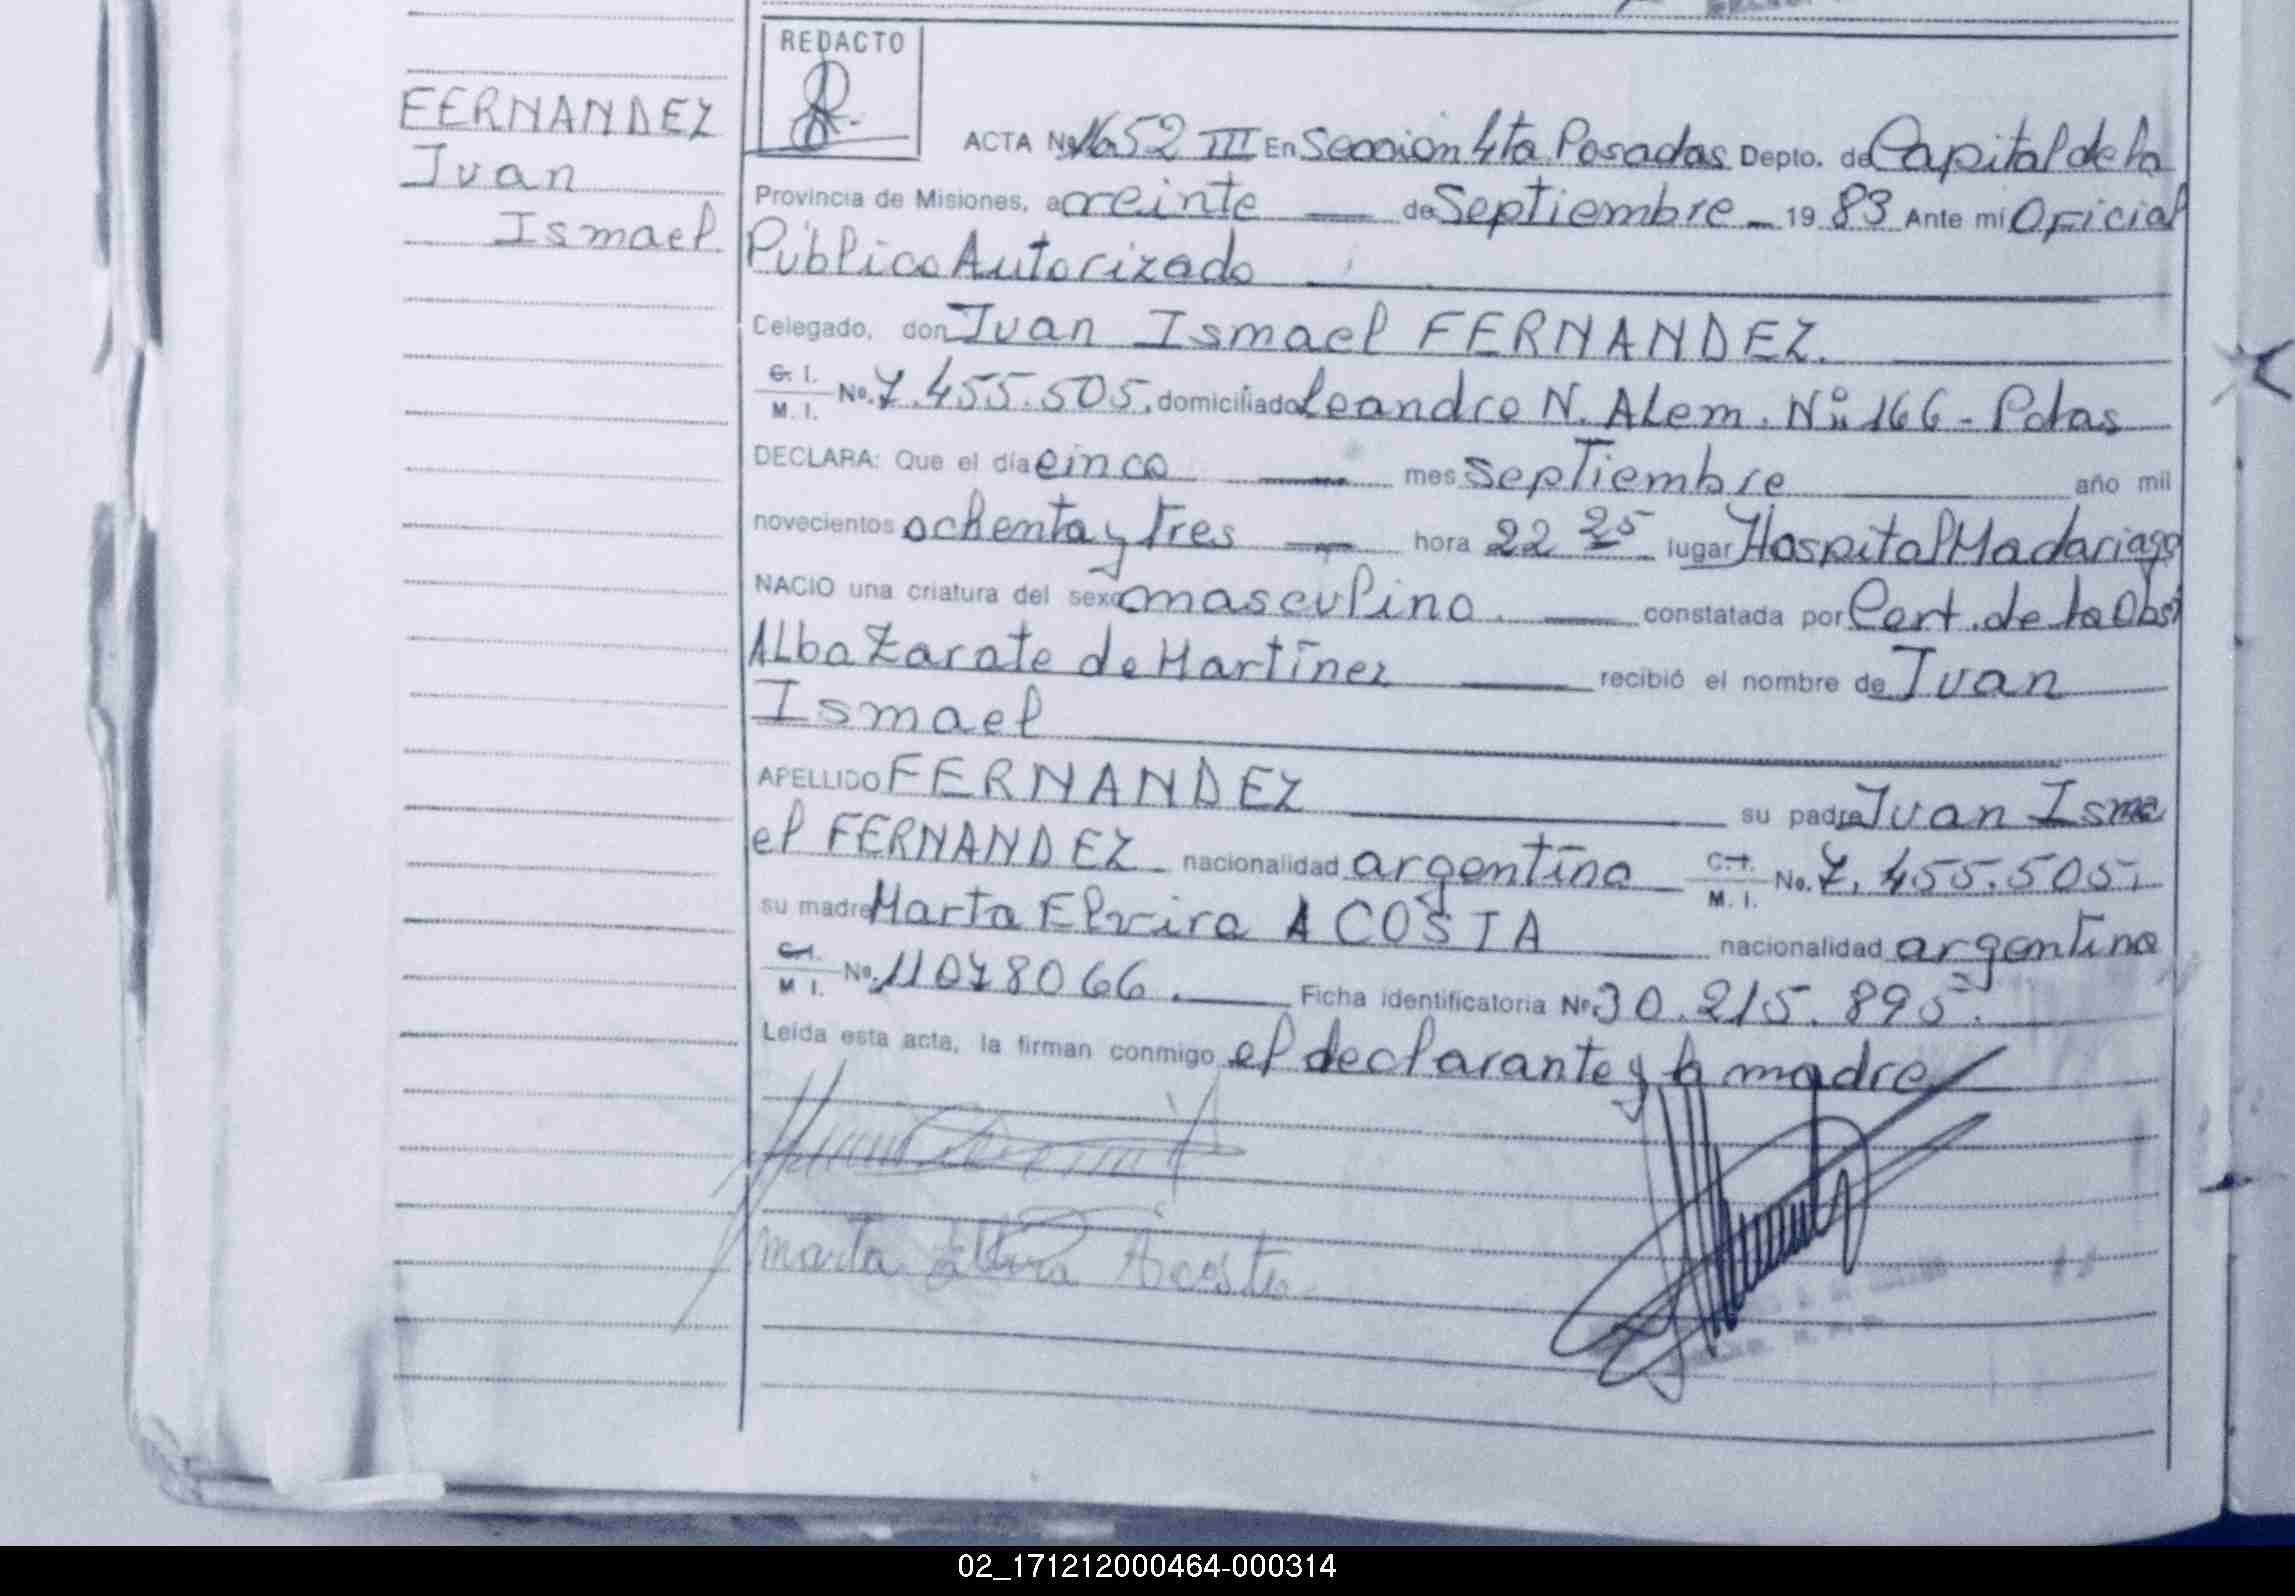 REDACTO
FERNANDEZ
Juan
Ismael
ACTA No 1652 III En Sección 4ta Posadas Depto. de Capital de la
Provincia de Misiones, a veinte de Septiembre 19 83 Ante mí Oficial
Público Autorizado
Celegado, don Juan Ismael FERNANDEZ.
C. I. M. I. No. 7.455.505. domiciliado Leandro N. Alem. Nº 166 - Pdas
DECLARA: Que el día cinco mes Septiembre año mil
novecientos ochenta y tres hora 22 25 lugar Hospital Madariaga
NACIO una criatura del sexo masculino. constatada por Cert. de la Obst
Alba Zarate de Martínez recibió el nombre de Juan
Ismael
APELLIDO FERNANDEZ su padre Juan Isma
el FERNANDEZ nacionalidad argentina C. I. M. I. No. 7.455.505.
su madre Marta Elvira ACOSTA nacionalidad argentina
C. I. M. I. No. 11078066. Ficha identificatoria Nº 30.215.895.
Leída esta acta, la firman conmigo el declarante y la madre
Marta Elvira Acosta
02_171212000464-000314